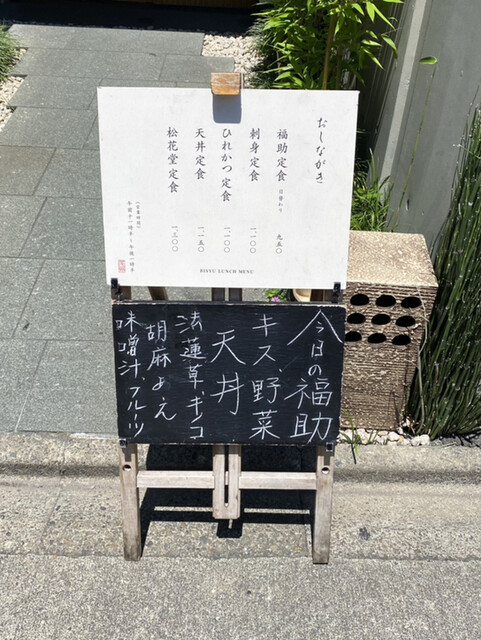 おしながき
福助定食 日替わり 九五〇
刺身定食 一一〇〇
ひれかつ定食 一一〇〇
天丼定食 一一五〇
松花堂定食 一三〇〇
（営業時間）
午前十一時半〜午後一時半
BISYU LUNCH MENU
今日の福助
キス、野菜
天丼
法蓮草、キノコ
胡麻あえ
味噌汁、フルーツ